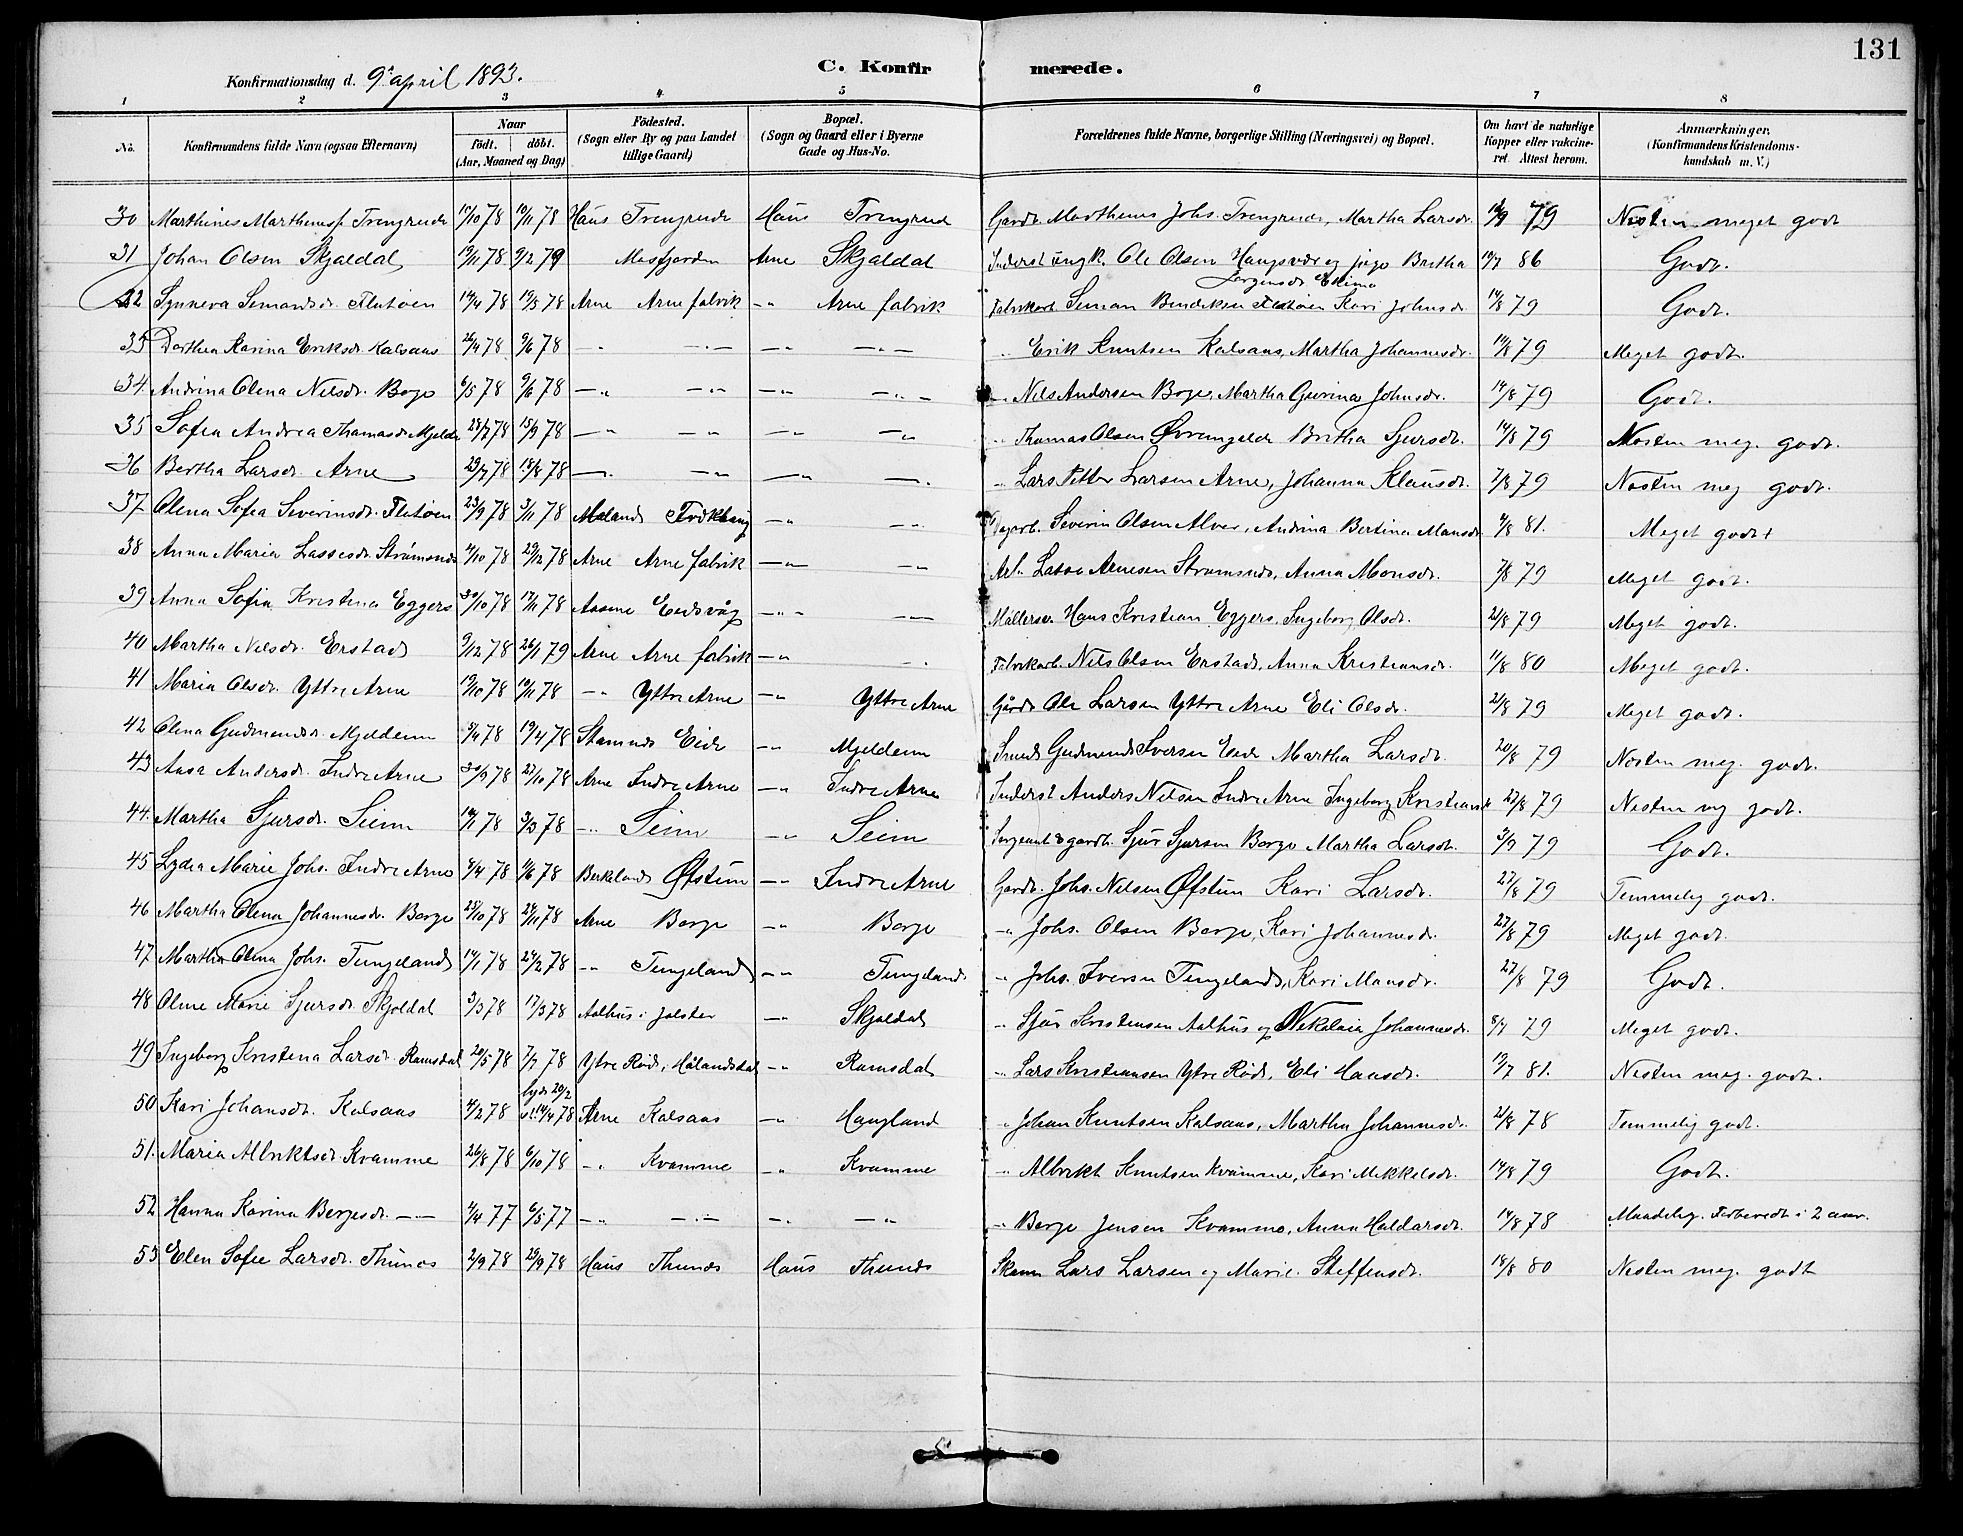 131
C. Konfirmerede.
Konfirmationsdag d. 9de april 1893.
1 2 3 4 5 6 7 8
No. Konfirmandens fulde Navn (ogsaa Efternavn) Naar født. døbt. (Aar, Maaned og Dag) Fødested. (Sogn eller By og paa Landet tillige Gaard) Bopæl. (Sogn og Gaard eller i Byerne Gade og Hus-No. Forældrenes fulde Navne, borgerlige Stilling (Næringsvei) og Bopæl. Om havt de naturlige Kopper eller vakcineret. Attest herom. Anmærkninger, (Konfirmandens Kristendomskundskab m. V.)
30 Marthines Marthinus Trengreide 17/10 78 10/11 78 Haus Trengreide Haus Trengreid Gardr. Marthinus Johs. Trengreide, Martha Larsdr. 79 Nesten meget godt
31 Johan Olsen Skjoldal 19/11 78 9/2 79 Masfjorden Arne Skjoldal Inderst ungk. Ole Olsen Haugsvær og pige Britha Jørgensdr. 19/7 86 Godt.
32 Synneva Simonsdr. Flutøen 14/4 78 19/5 78 Arne Arne fabrik -"- Arne fabrik Fabrikarb. Simon Bendiksen Flutøen Kari Johnsdr. 14/8 79 Godt.
33 Dorthea Karina Eriksdr. Kalsaas 26/4 78 9/6 78 -"- -"- -"- -"- " Erik Knutsen Kalsaas, Martha Johannesdr. 14/8 79 Meget godt.
34 Andrina Olena Nilsdr. Boge 6/5 78 9/6 78 -"- -"- -"- -"- -"- Nils Andersen Boge, Martha Gurina Johnsdr. 14/8 79 Godt.
35 Sofia Andrea Thomasdr. Mjelde 28/7 78 15/9 78 -"- -"- -"- -"- " Thomas Olsen Øvremjelde Britha Sjursdr. 14/8 79 Nesten meg. godt.
36 Bertha Larsdr. Arne 29/7 78 18/8 78 -"- -"- -"- -"- -"- Lars Petter Larsen Arne, Johanna Klausdr. 7/8 79 Nesten meg godt.
37 Olena Sofia Severinsdr. Flutøen 23/9 78 3/11 78 Meland -"- -"- Severin Olsen Alver, Andrina Bertina Monsdr. 4/8 81. Meget godt
38 Anna Maria Lassesdr. Strømsnes 4/10 78 29/12 78 Arne Arne fabrik -"- -"- Arb. Lasse Arnesen Strømsnes, Anna Monsdr. 7/8 79 Meget godt.
39 Anna Sofia Kristina Eggers 30/10 78 17/11 78 Aasene Eidsvåg -"- -"- Møllersv. Hans Kristian Eggers, Ingeborg Olsdr. 21/8 79 Meget godt.
40 Martha Nilsdr. Erstad 9/12 78 26/1 79 Arne Arne fabrik -"- -"- Fabrikarb. Nils Olsen Erstad, Anna Kristiansdr. 11/8 80 Meget godt.
41 Maria Olsdr. Yttre Arne 19/10 78 10/11 78 -"- Yttre Arne -"- Yttre Arne Gårdr. Ole Larsen Yttre Arne Eli Olsdr. 21/8 79 Meget godt.
42 Olena Gudmundsdr. Mjeldeim 5/4 78 19/4 78 Stamnes Eide -"- Mjeldeim Smed Gudmund Iversen Eide Martha Larsdr. 20/8 79 Nesten meg. godt.
43 Aasa Andersdr. Indre Arne 30/9 78 27/10 78 Arne Indre Arne -"- Indre Arne Inderst Anders Nilsen Indre Arne Ingeborg Kristiansdr 27/8 79 Nesten mg godt.
44. Martha Sjursdr. Seim 14/1 78 3/3 78 -"- Seim -"- Seim Sergeant & gardbr. Sjur Sjursen Borge Martha Larsdr. 3/9 79 Godt.
45 Lydia Marie Johs. Indre Arne 8/4 78 11/6 78 Birkeland Øfstun -"- Indre Arne Gardr. Johs. Nilsen Øfstun Kari Larsdr. 27/8 79 Temmelig godt.
46 Martha Olena Johannesdr. Borge 25/10 78 24/11 78 Arne Borge -"- Borge -"- Johs. Olsen Borge, Kari Johannesdr. 27/8 79 Meget godt.
47 Martha Olena Johs. Tungeland 14/1 78 24/2 78 -"- Tungeland -"- Tungeland -"- Johs. Iversen Tungeland, Kari Monsdr. 27/8 79 Godt.
48 Oline Marie Sjursdr. Skjoldal 3/3 78 17/3 78 Aalhus i Jølster -"- Skjoldal -"- Sjur Kristensen Aalhus og Nikolaia Johannesdr. 8/7 79 Meget godt.
49 Ingeborg Kristina Larsdr. Ramsdal 20/5 78 7/7 78 Ytre Rød, Hålandsdal -"- Ramsdal -"- Lars Kristiansen Ytre Rød, Eli Hansdr. 19/7 81. Nesten meg. godt.
50 Kari Johansdr. Kalsaas 4/2 78 hjd 20/2 14/4 78 Arne Kalsaas -"- Haugland -"- Johan Knutsen Kalsaas, Martha Johannesdr. 21/8 78 Temmelig godt.
51. Maria Albriktsdr. Kvamme 26/8 78 6/10 78 -"- Kvamme -"- Kvamme -"- Albrikt Knutsen Kvamme, Kari Mikkelsdr. 14/8 79 Godt.
52 Hanna Karina Bergesdr. -"- 4/4 77 6/5 77 -"- -"- -"- -"- -"- Berge Jensen Kvamme, Anna Haldorsdr. 14/8 78 Maadelig. Forberedt i 2 aar.
53 Elen Sofie Larsdr. Thunes 2/9 78 29/9 78 Haus Thunes Haus Thunes Lars Larsen og Marie Steffensdr. 14/8 80 Nesten meg. godt